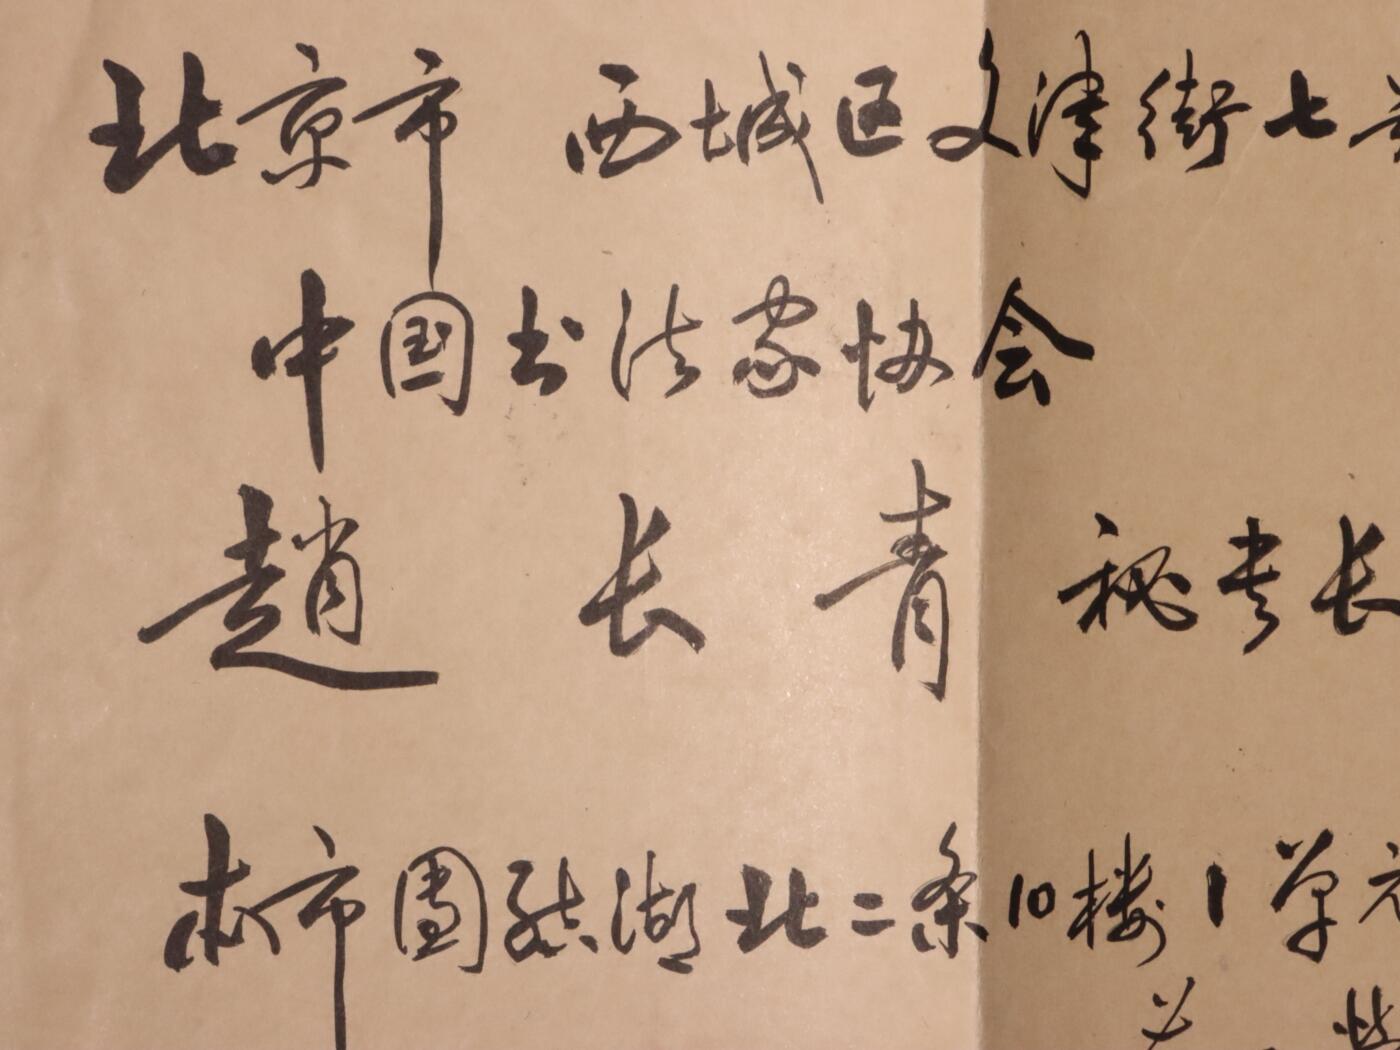 北京市 西城区文津街七号
中国书法家协会
趙长青 秘书长
本市团结湖北二条10楼1单元